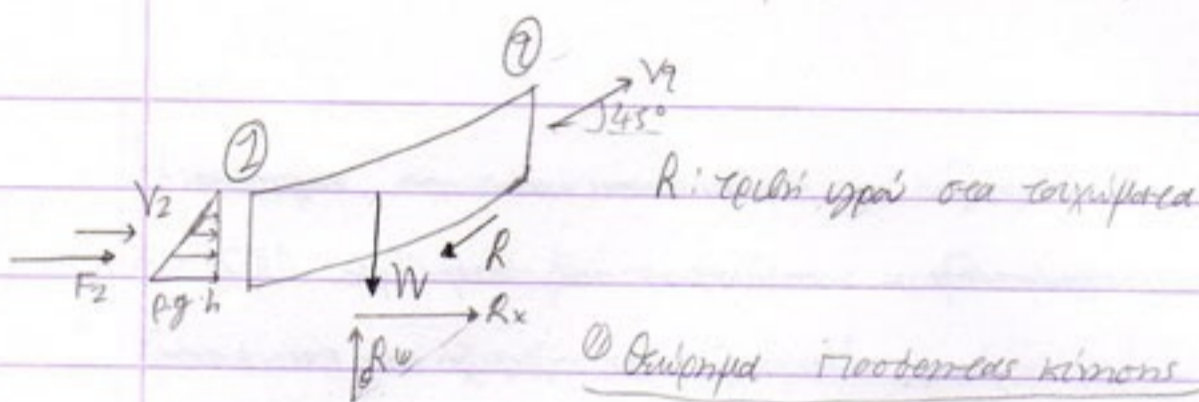 ②
V₂
F₂
ρ.g.h
W
R
Rₓ
45°
R: τριβή υγρού στα τοιχώματα
① Θεώρημα Ποσότητας κίνησης